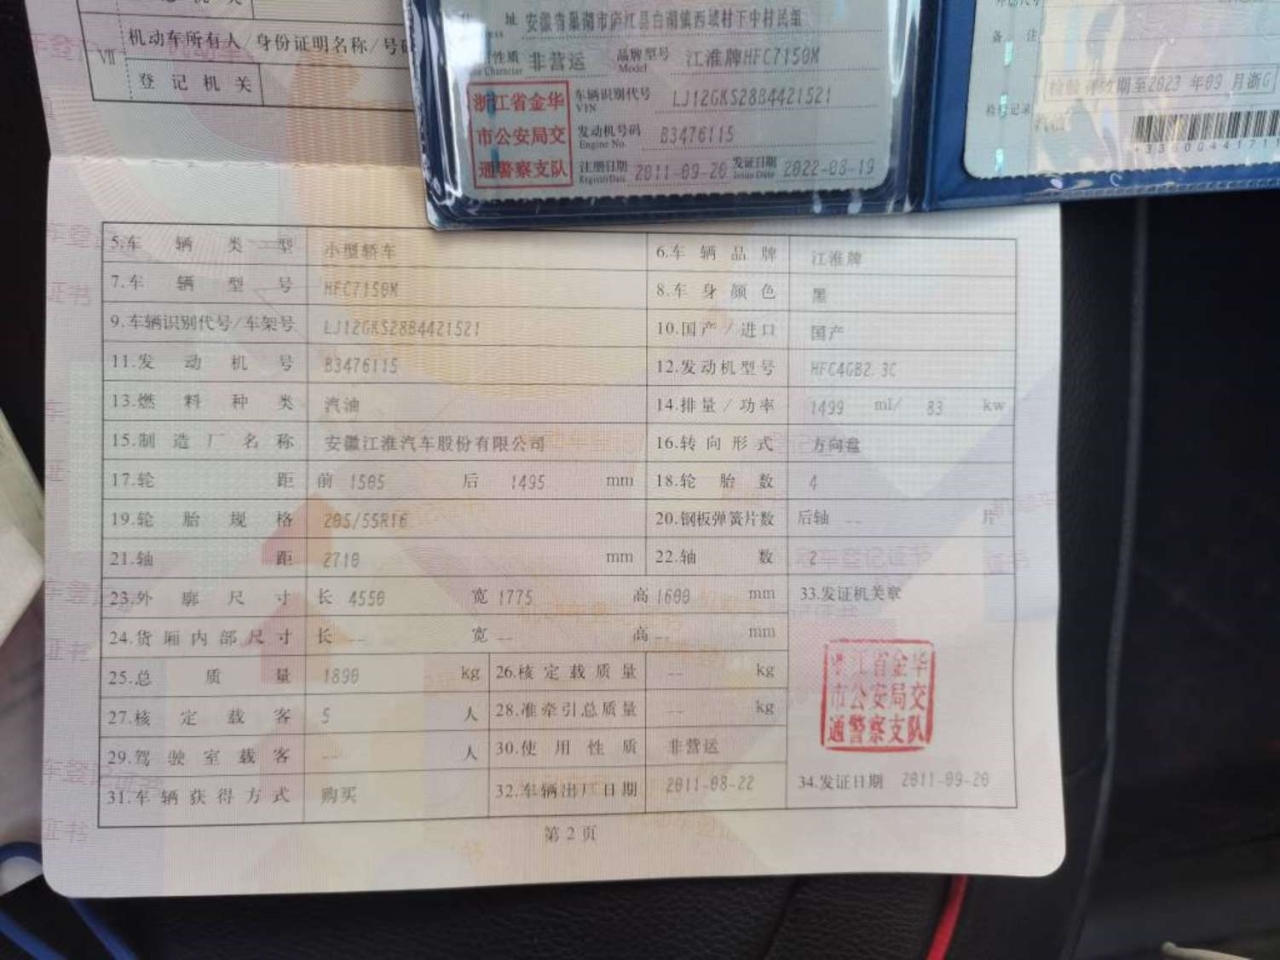 登记机关
Ⅶ 机动车所有人/身份证明名称/号码
登记机关
址 安徽省巢湖市庐江县白湖镇西城村下中村民组
性质 非营运 品牌型号 江淮牌HFC7150M
Character Model
浙江省金华
市公安局交
通警察支队
车辆识别代号 LJ12GKS28B4421521
VIN
发动机号码 B3476115
Engine No.
注册日期 2011-09-20 发证日期 2022-08-19
Register Date Issue Date
备注
检验有效期至2023年09月浙G
检验记录
5.车辆类型 小型轿车 6.车辆品牌 江淮牌
7.车辆型号 HFC7150M 8.车身颜色 黑
9.车辆识别代号/车架号 LJ12GKS28B4421521 10.国产/进口 国产
11.发动机号 B3476115 12.发动机型号 HFC4GB2.3C
13.燃料种类 汽油 14.排量/功率 1499 ml/ 83 kw
15.制造厂名称 安徽江淮汽车股份有限公司 16.转向形式 方向盘
17.轮距 前 1505 后 1495 mm 18.轮胎数 4
19.轮胎规格 205/55R16 20.钢板弹簧片数 后轴 -- 片
21.轴距 2710 mm 22.轴数 2
23.外廓尺寸 长 4550 宽 1775 高 1600 mm 33.发证机关章
24.货厢内部尺寸 长 -- 宽 -- 高 -- mm
25.总质量 1890 kg 26.核定载质量 -- kg
27.核定载客 5 人 28.准牵引总质量 -- kg
29.驾驶室载客 -- 人 30.使用性质 非营运
31.车辆获得方式 购买 32.车辆出厂日期 2011-08-22 34.发证日期 2011-09-20
浙江省金华
市公安局交
通警察支队
第2页